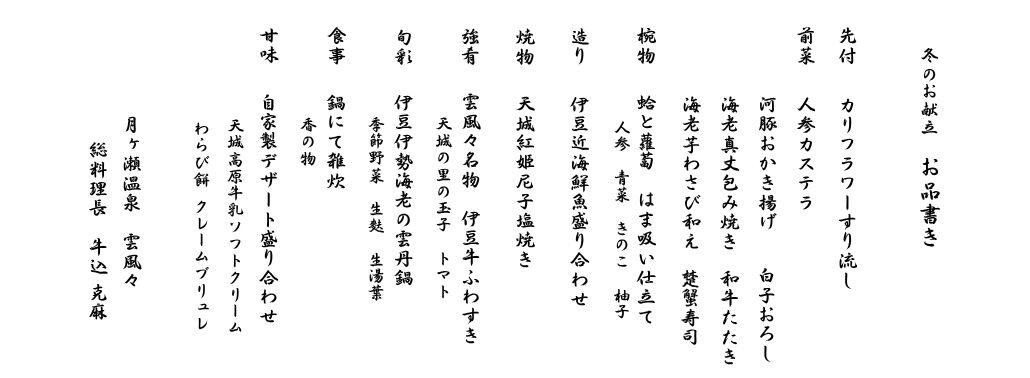 冬のお献立　お品書き
先付　カリフラワーすり流し
前菜　人参カステラ
河豚おかき揚げ　白子おろし
海老真丈包み焼き　和牛たたき
海老芋わさび和え　楚蟹寿司
椀物　蛤と蘿蔔　はま吸い仕立て
人参　青菜　きのこ　柚子
造り　伊豆近海鮮魚盛り合わせ
焼物　天城紅姫尼子塩焼き
強肴　雲風々名物　伊豆牛ふわすき
天城の里の玉子　トマト
旬彩　伊豆伊勢海老の雲丹鍋
季節野菜　生麩　生湯葉
食事　鍋にて雑炊
香の物
甘味　自家製デザート盛り合わせ
天城高原牛乳ソフトクリーム
わらび餅　クレームブリュレ
月ヶ瀬温泉　雲風々
総料理長　牛込 克麻